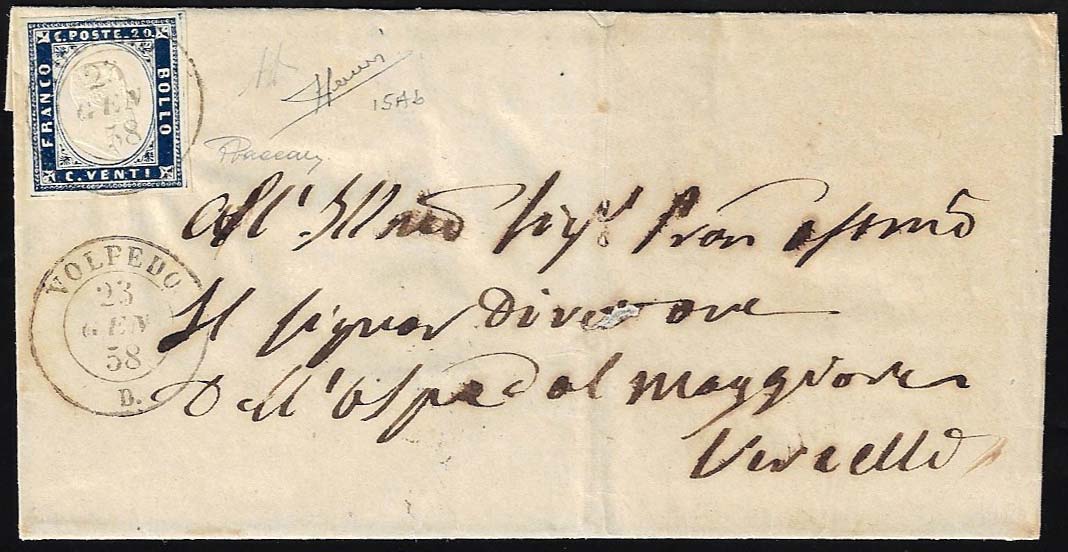 C. POSTE. 20.
FRANCO
BOLLO
C. VENTI
23
GEN
58
15Ab
All'
Il Signor Direttore
Dell'Ospedal Maggiore
Vercelli
VOLPEDO
23
GEN
58
D.